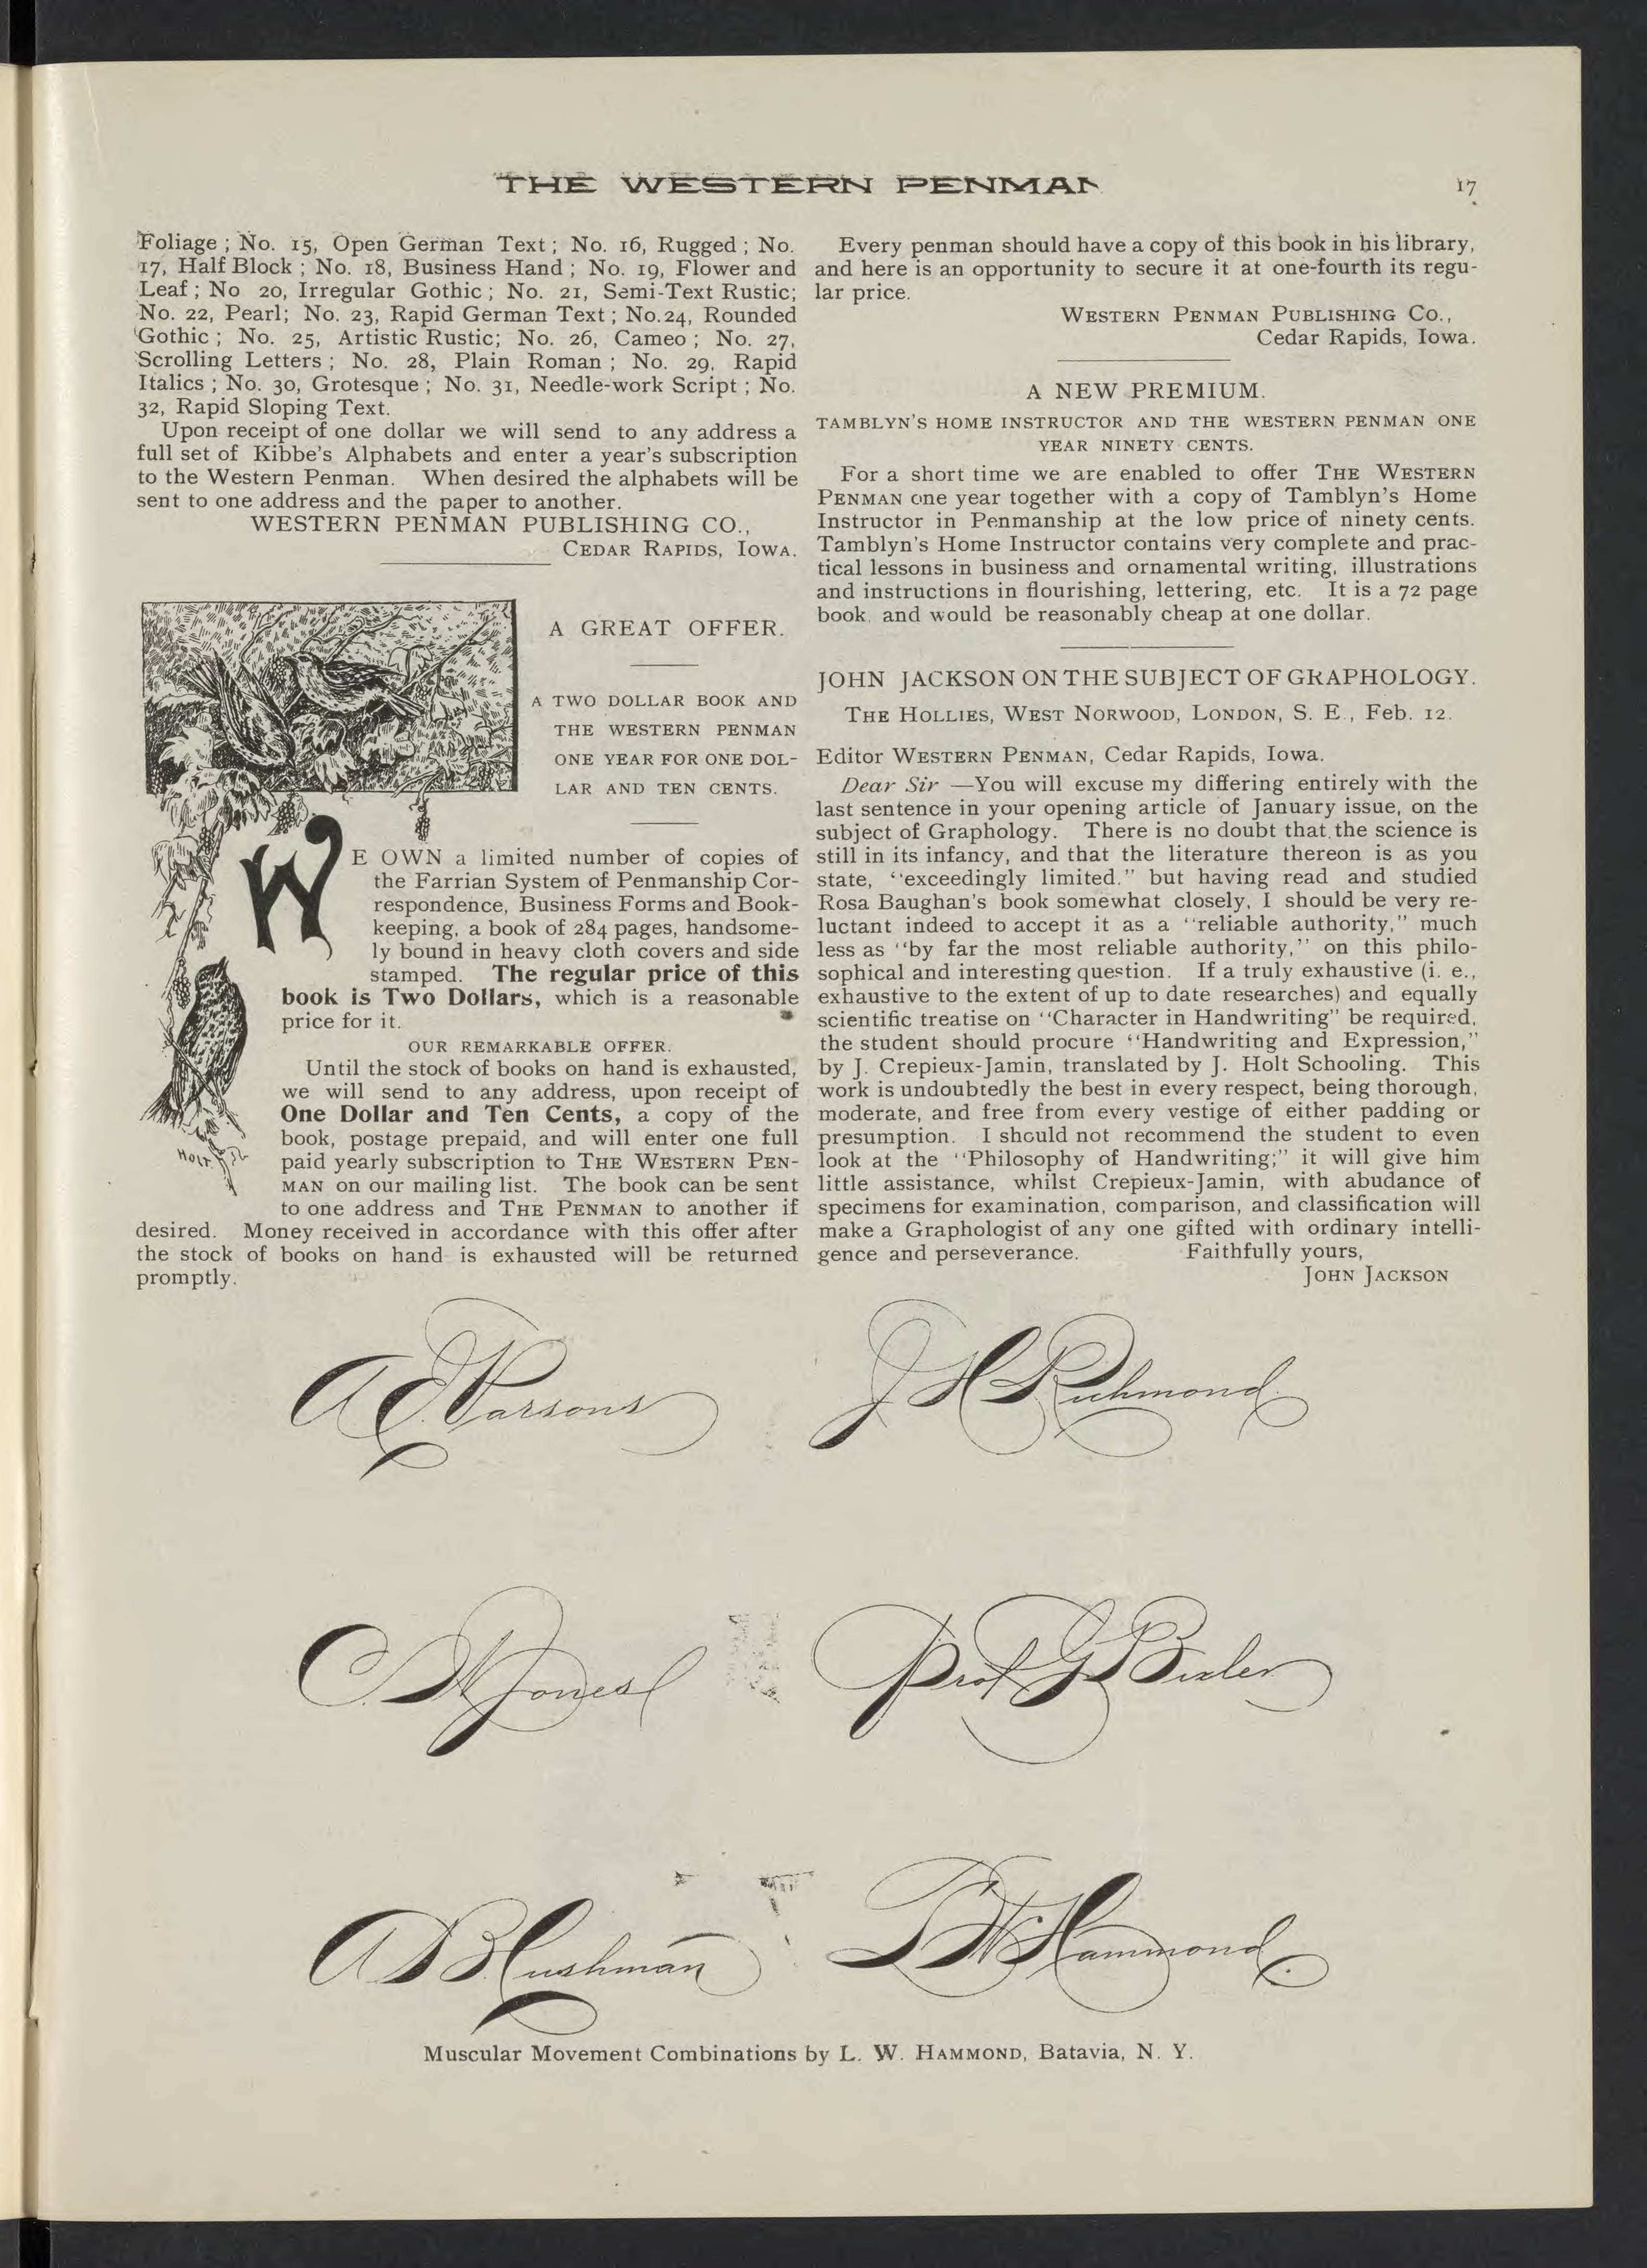 THE WESTERN PENMAN
17
Foliage ; No. 15, Open German Text ; No. 16, Rugged ; No.
17, Half Block ; No. 18, Business Hand ; No. 19, Flower and
Leaf ; No 20, Irregular Gothic ; No. 21, Semi-Text Rustic;
No. 22, Pearl; No. 23, Rapid German Text ; No.24, Rounded
Gothic ; No. 25, Artistic Rustic; No. 26, Cameo ; No. 27,
Scrolling Letters ; No. 28, Plain Roman ; No. 29, Rapid
Italics ; No. 30, Grotesque ; No. 31, Needle-work Script ; No.
32, Rapid Sloping Text.
Upon receipt of one dollar we will send to any address a
full set of Kibbe's Alphabets and enter a year's subscription
to the Western Penman. When desired the alphabets will be
sent to one address and the paper to another.
WESTERN PENMAN PUBLISHING CO.,
CEDAR RAPIDS, IOWA.
A GREAT OFFER.
A TWO DOLLAR BOOK AND
THE WESTERN PENMAN
ONE YEAR FOR ONE DOL-
LAR AND TEN CENTS.
WE OWN a limited number of copies of
the Farrian System of Penmanship Cor-
respondence, Business Forms and Book-
keeping, a book of 284 pages, handsome-
ly bound in heavy cloth covers and side
stamped. The regular price of this
book is Two Dollars, which is a reasonable
price for it.
OUR REMARKABLE OFFER.
Until the stock of books on hand is exhausted,
we will send to any address, upon receipt of
One Dollar and Ten Cents, a copy of the
book, postage prepaid, and will enter one full
paid yearly subscription to THE WESTERN PEN-
MAN on our mailing list. The book can be sent
to one address and THE PENMAN to another if
desired. Money received in accordance with this offer after
the stock of books on hand is exhausted will be returned
promptly.
HOLT
Every penman should have a copy of this book in his library,
and here is an opportunity to secure it at one-fourth its regu-
lar price.
WESTERN PENMAN PUBLISHING CO.,
Cedar Rapids, Iowa.
A NEW PREMIUM.
TAMBLYN'S HOME INSTRUCTOR AND THE WESTERN PENMAN ONE
YEAR NINETY CENTS.
For a short time we are enabled to offer THE WESTERN
PENMAN one year together with a copy of Tamblyn's Home
Instructor in Penmanship at the low price of ninety cents.
Tamblyn's Home Instructor contains very complete and prac-
tical lessons in business and ornamental writing, illustrations
and instructions in flourishing, lettering, etc. It is a 72 page
book, and would be reasonably cheap at one dollar.
JOHN JACKSON ON THE SUBJECT OF GRAPHOLOGY.
THE HOLLIES, WEST NORWOOD, LONDON, S. E., Feb. 12.
Editor WESTERN PENMAN, Cedar Rapids, Iowa.
Dear Sir —You will excuse my differing entirely with the
last sentence in your opening article of January issue, on the
subject of Graphology. There is no doubt that the science is
still in its infancy, and that the literature thereon is as you
state, "exceedingly limited." but having read and studied
Rosa Baughan's book somewhat closely, I should be very re-
luctant indeed to accept it as a "reliable authority," much
less as "by far the most reliable authority," on this philo-
sophical and interesting question. If a truly exhaustive (i. e.,
exhaustive to the extent of up to date researches) and equally
scientific treatise on "Character in Handwriting" be required,
the student should procure "Handwriting and Expression,"
by J. Crepieux-Jamin, translated by J. Holt Schooling. This
work is undoubtedly the best in every respect, being thorough,
moderate, and free from every vestige of either padding or
presumption. I should not recommend the student to even
look at the "Philosophy of Handwriting;" it will give him
little assistance, whilst Crepieux-Jamin, with abudance of
specimens for examination, comparison, and classification will
make a Graphologist of any one gifted with ordinary intelli-
gence and perseverance. Faithfully yours,
JOHN JACKSON
A E Parsons
J H Richmond
C. N Jones
Prof G Bixler
A B Cushman
L W Hammond
Muscular Movement Combinations by L. W. HAMMOND, Batavia, N. Y.